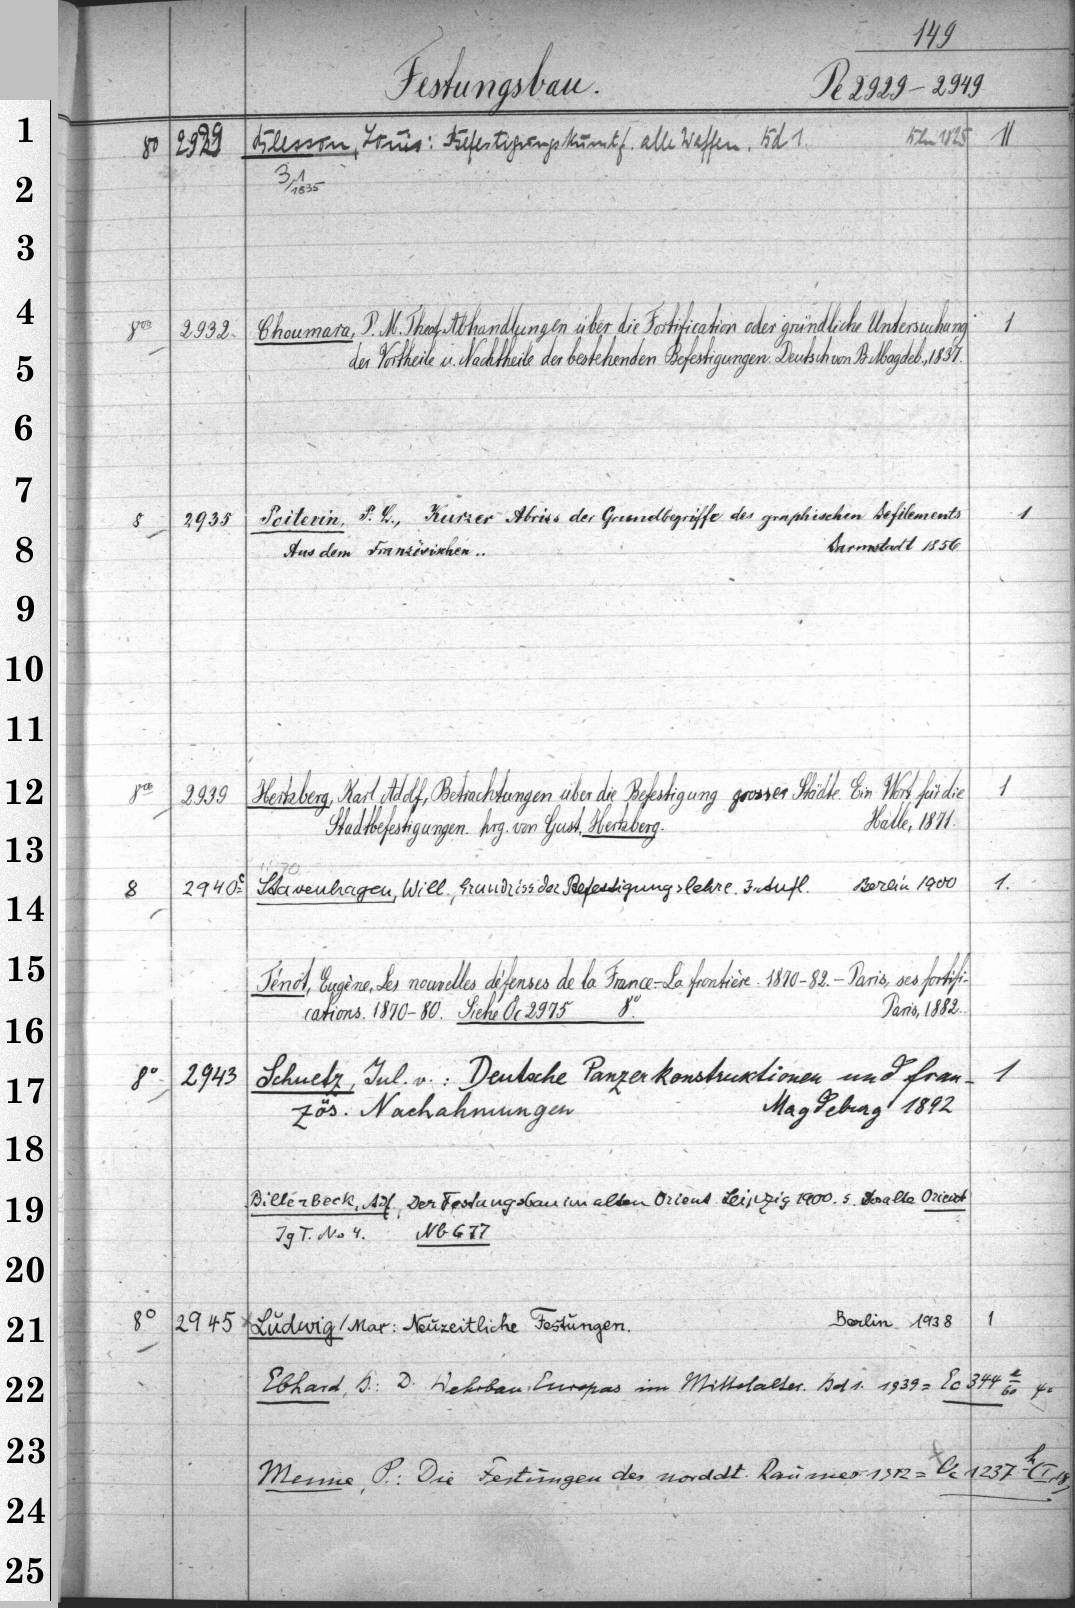 149
Festungsbau. Pe 2929-2949
1
8° 2929 Blesson, Louis: Befestigungskunst f. alle Waffen. Bd 1. Bln 1825 II
2
3,1 1835
3
4
8vo 2932. Choumara, P. M. Theod, Abhandlungen über die Fortification oder gründliche Untersuchung 1
der Vortheile u. Nachtheile der bestehenden Befestigungen. Deutsch von B. Magdeb., 1831.
5
6
7
8 2935 Poitevin, P. L., Kurzer Abriss der Grundbegriffe des graphischen Defilements 1
8
Aus dem Französischen.. Darmstadt 1856
9
10
11
12
8vo 2939 Hertzberg, Karl Adolf, Betrachtungen über die Befestigung grosser Städte. Ein Wort für die 1
Stadtbefestigungen. hrg. von Gust. Hertzberg. Halle, 1871.
13
8 2940c Stavenhagen, Will., Grundriss der Befestigungslehre. 3. Aufl. Berlin 1900 1.
14
15
Ténot, Eugène, Les nouvelles défenses de la France.- La frontière. 1870-82. - Paris, ses fortifi-
cations. 1870-80. Siehe Oc 2975 8° Paris, 1882.
16
17
8° 2943 Schuetz, Jul. v.: Deutsche Panzerkonstruktionen und fran- 1
zös. Nachahmungen Magdeburg 1892
18
19
Billerbeck, Adf, Der Festungsbau im alten Orient. Leipzig 1900. s. Der alte Orient
Jg T. No 4. Nb 677
20
21
8° 2945 Ludwig, Max: Neuzeitliche Festungen. Berlin 1938 1
22
Ebhard, B.: D. Wehrbau Europas im Mittelalter. Bd 1. 1939= Ec 344 60 4°
23
Menne, P.: Die Festungen des norddt. Raumes 1942= Oc 1237 h (I, 18)
24
25